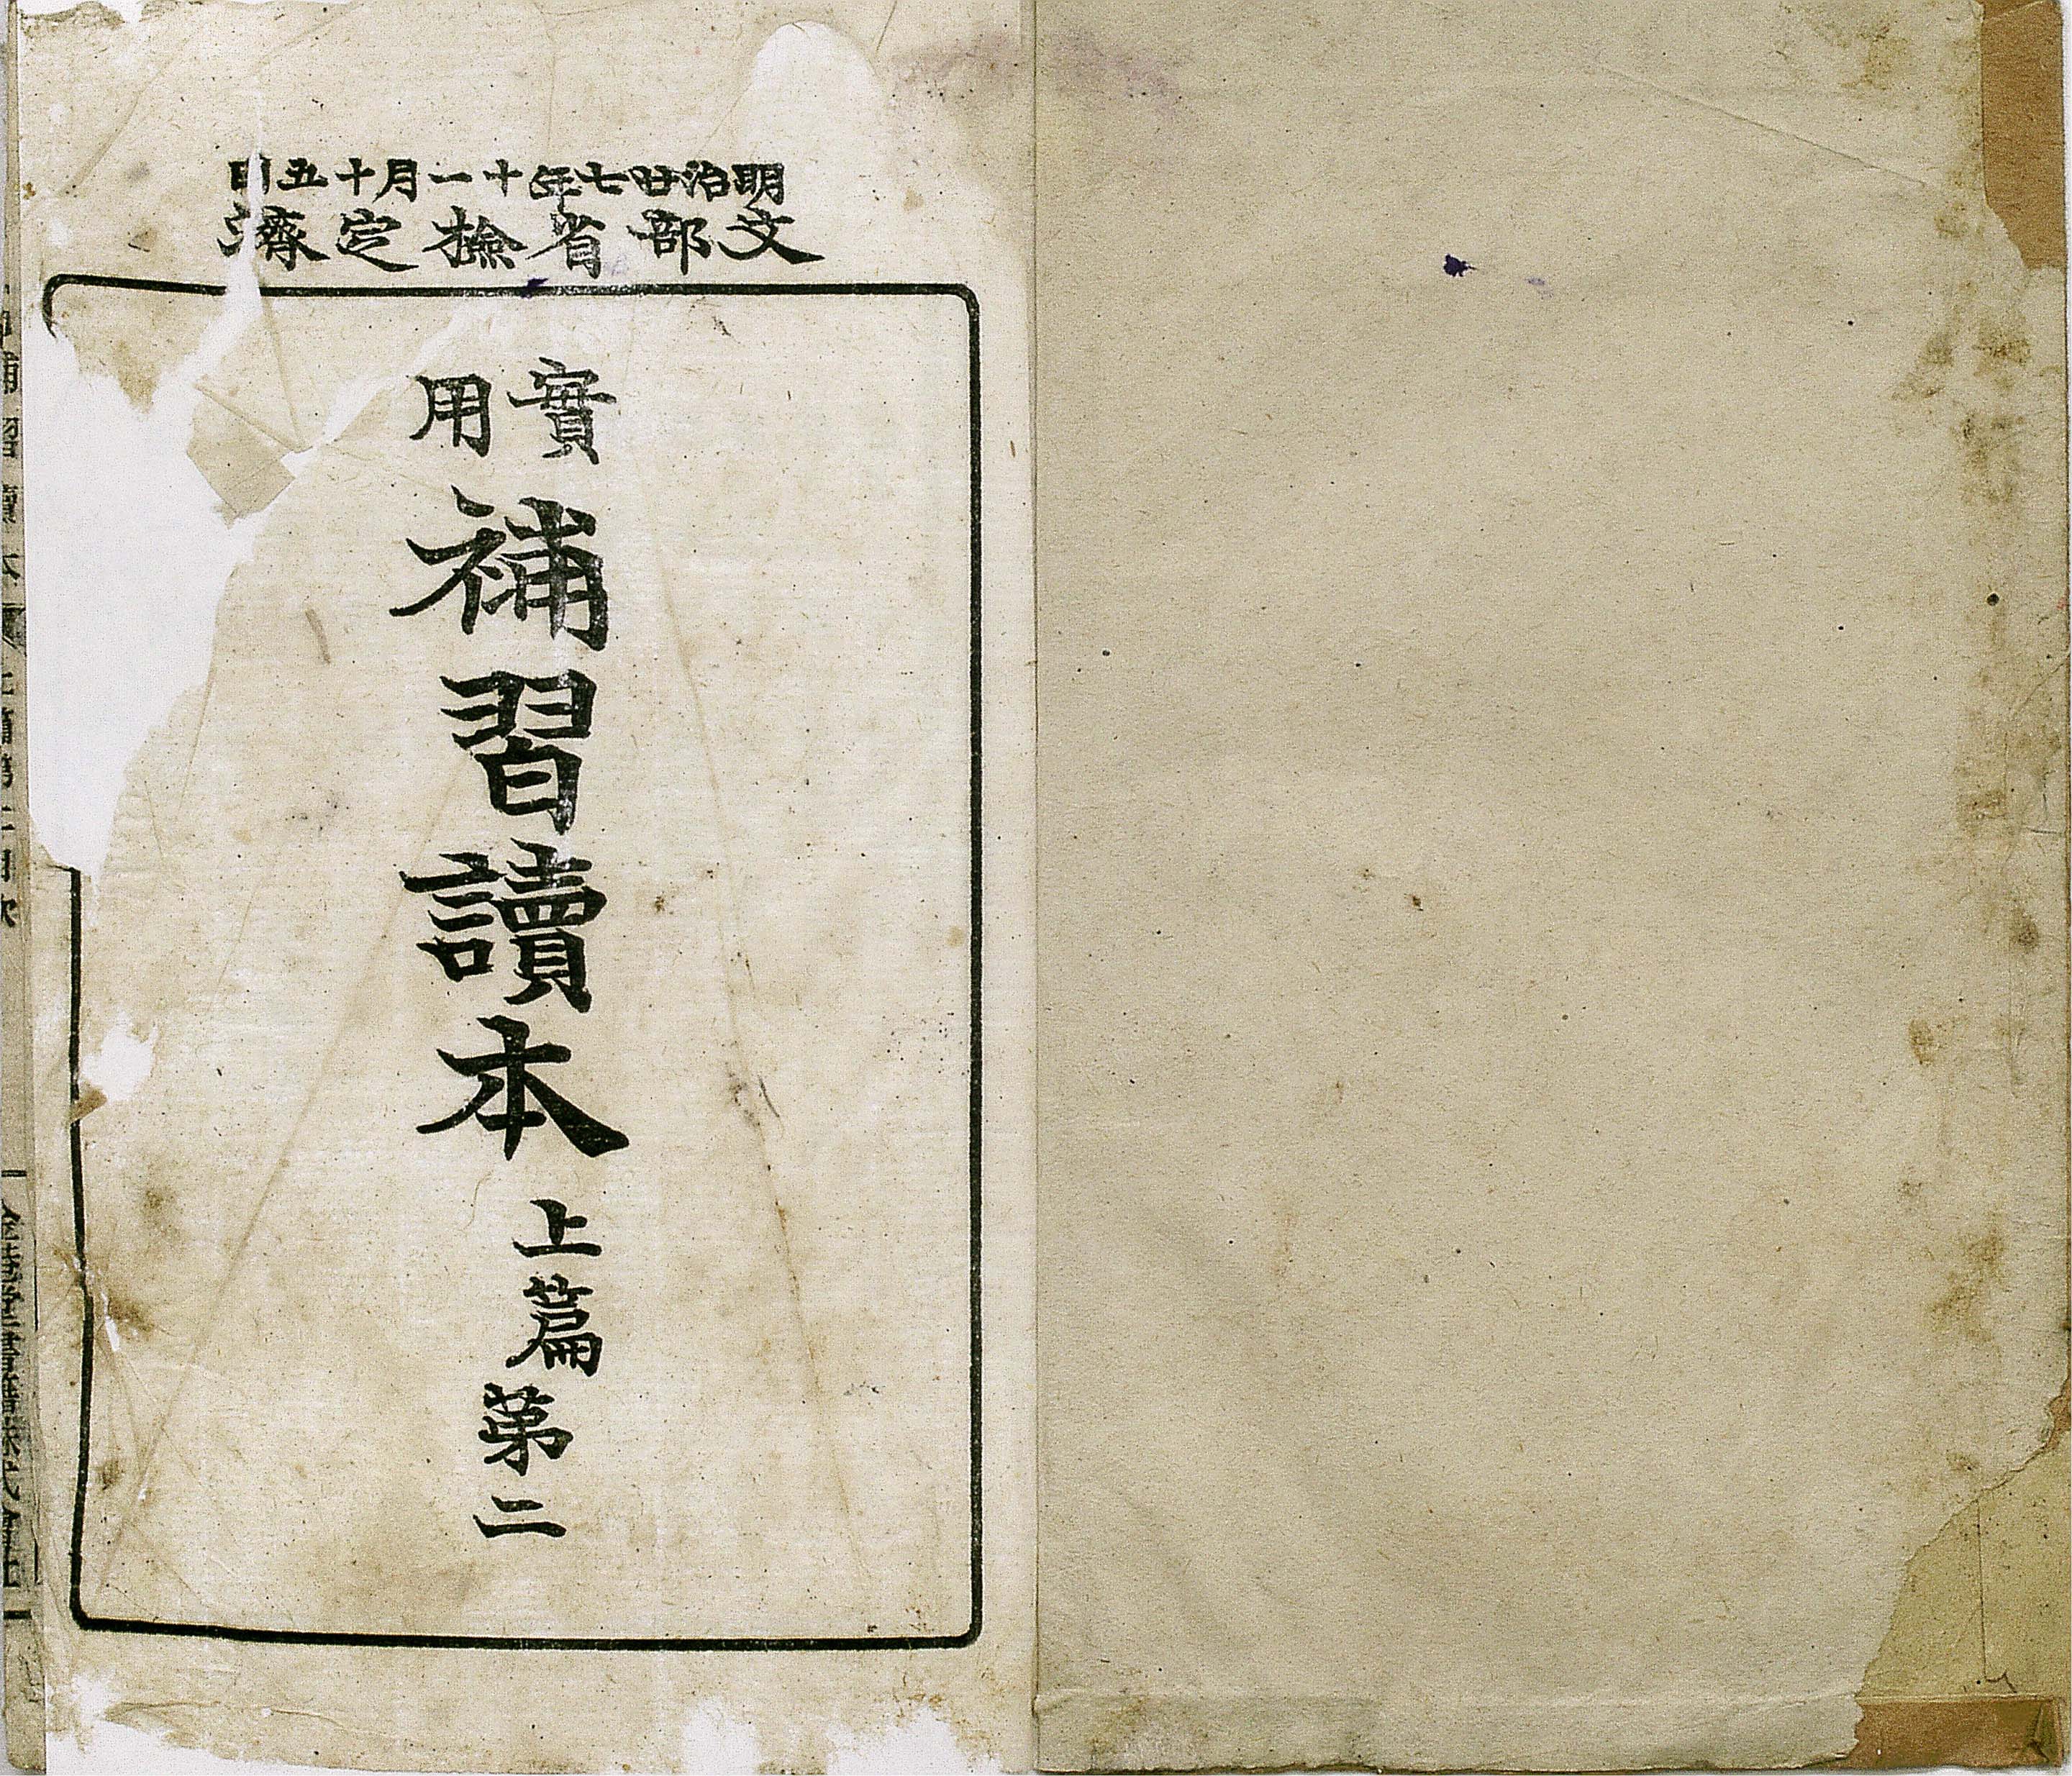 明治廿七年十一月十五日
文部省檢定濟
實用
補習讀本
上篇第二